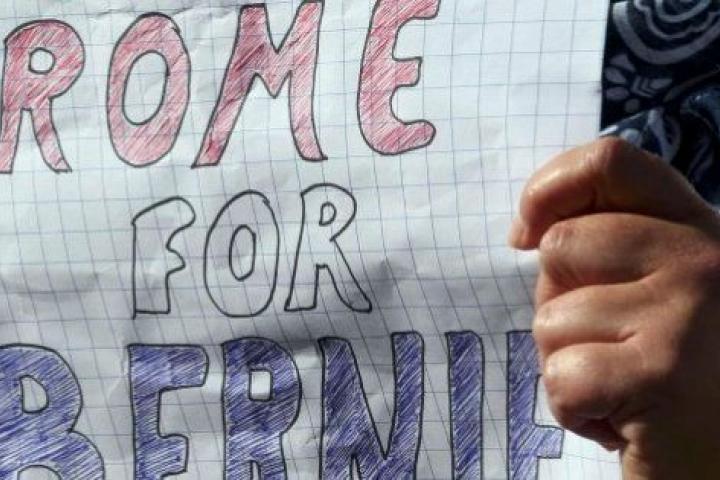 ROME
FOR
BERNIE